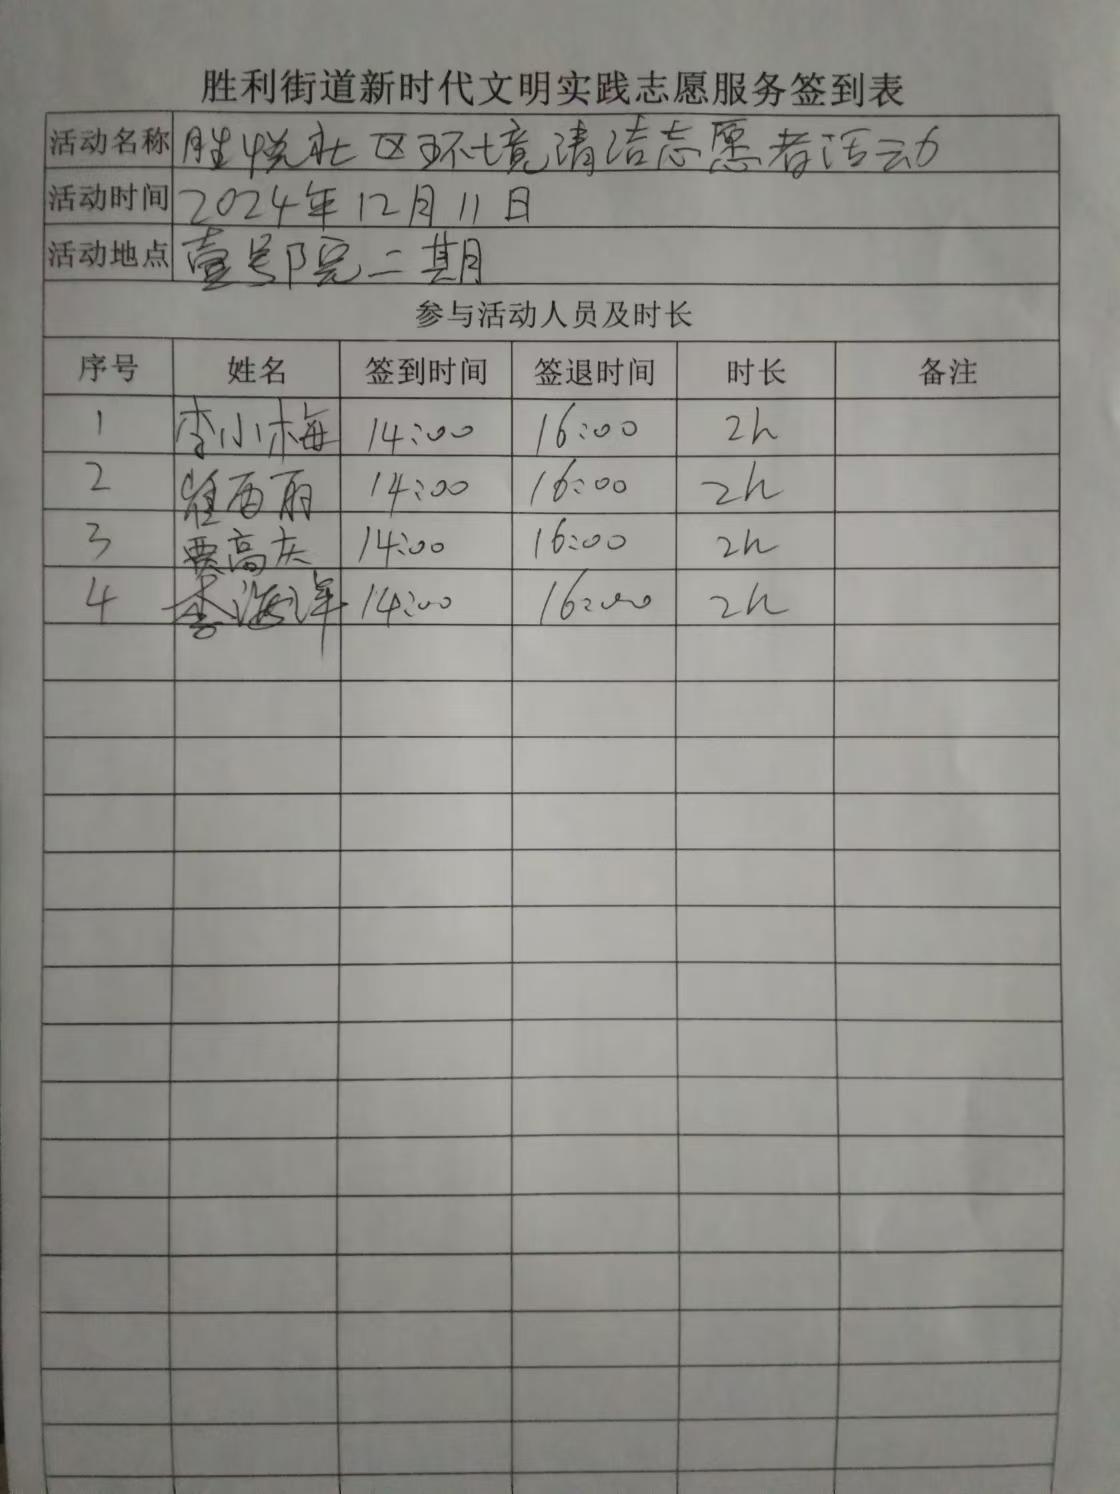 胜利街道新时代文明实践志愿服务签到表
活动名称 胜悦社区环境清洁志愿者活动
活动时间 2024年12月11日
活动地点 壹号院二期
参与活动人员及时长
序号 姓名 签到时间 签退时间 时长 备注
1 李小梅 14:00 16:00 2h
2 西丽 14:00 16:00 2h
3 高庆 14:00 16:00 2h
4 李海洋 14:00 16:00 2h